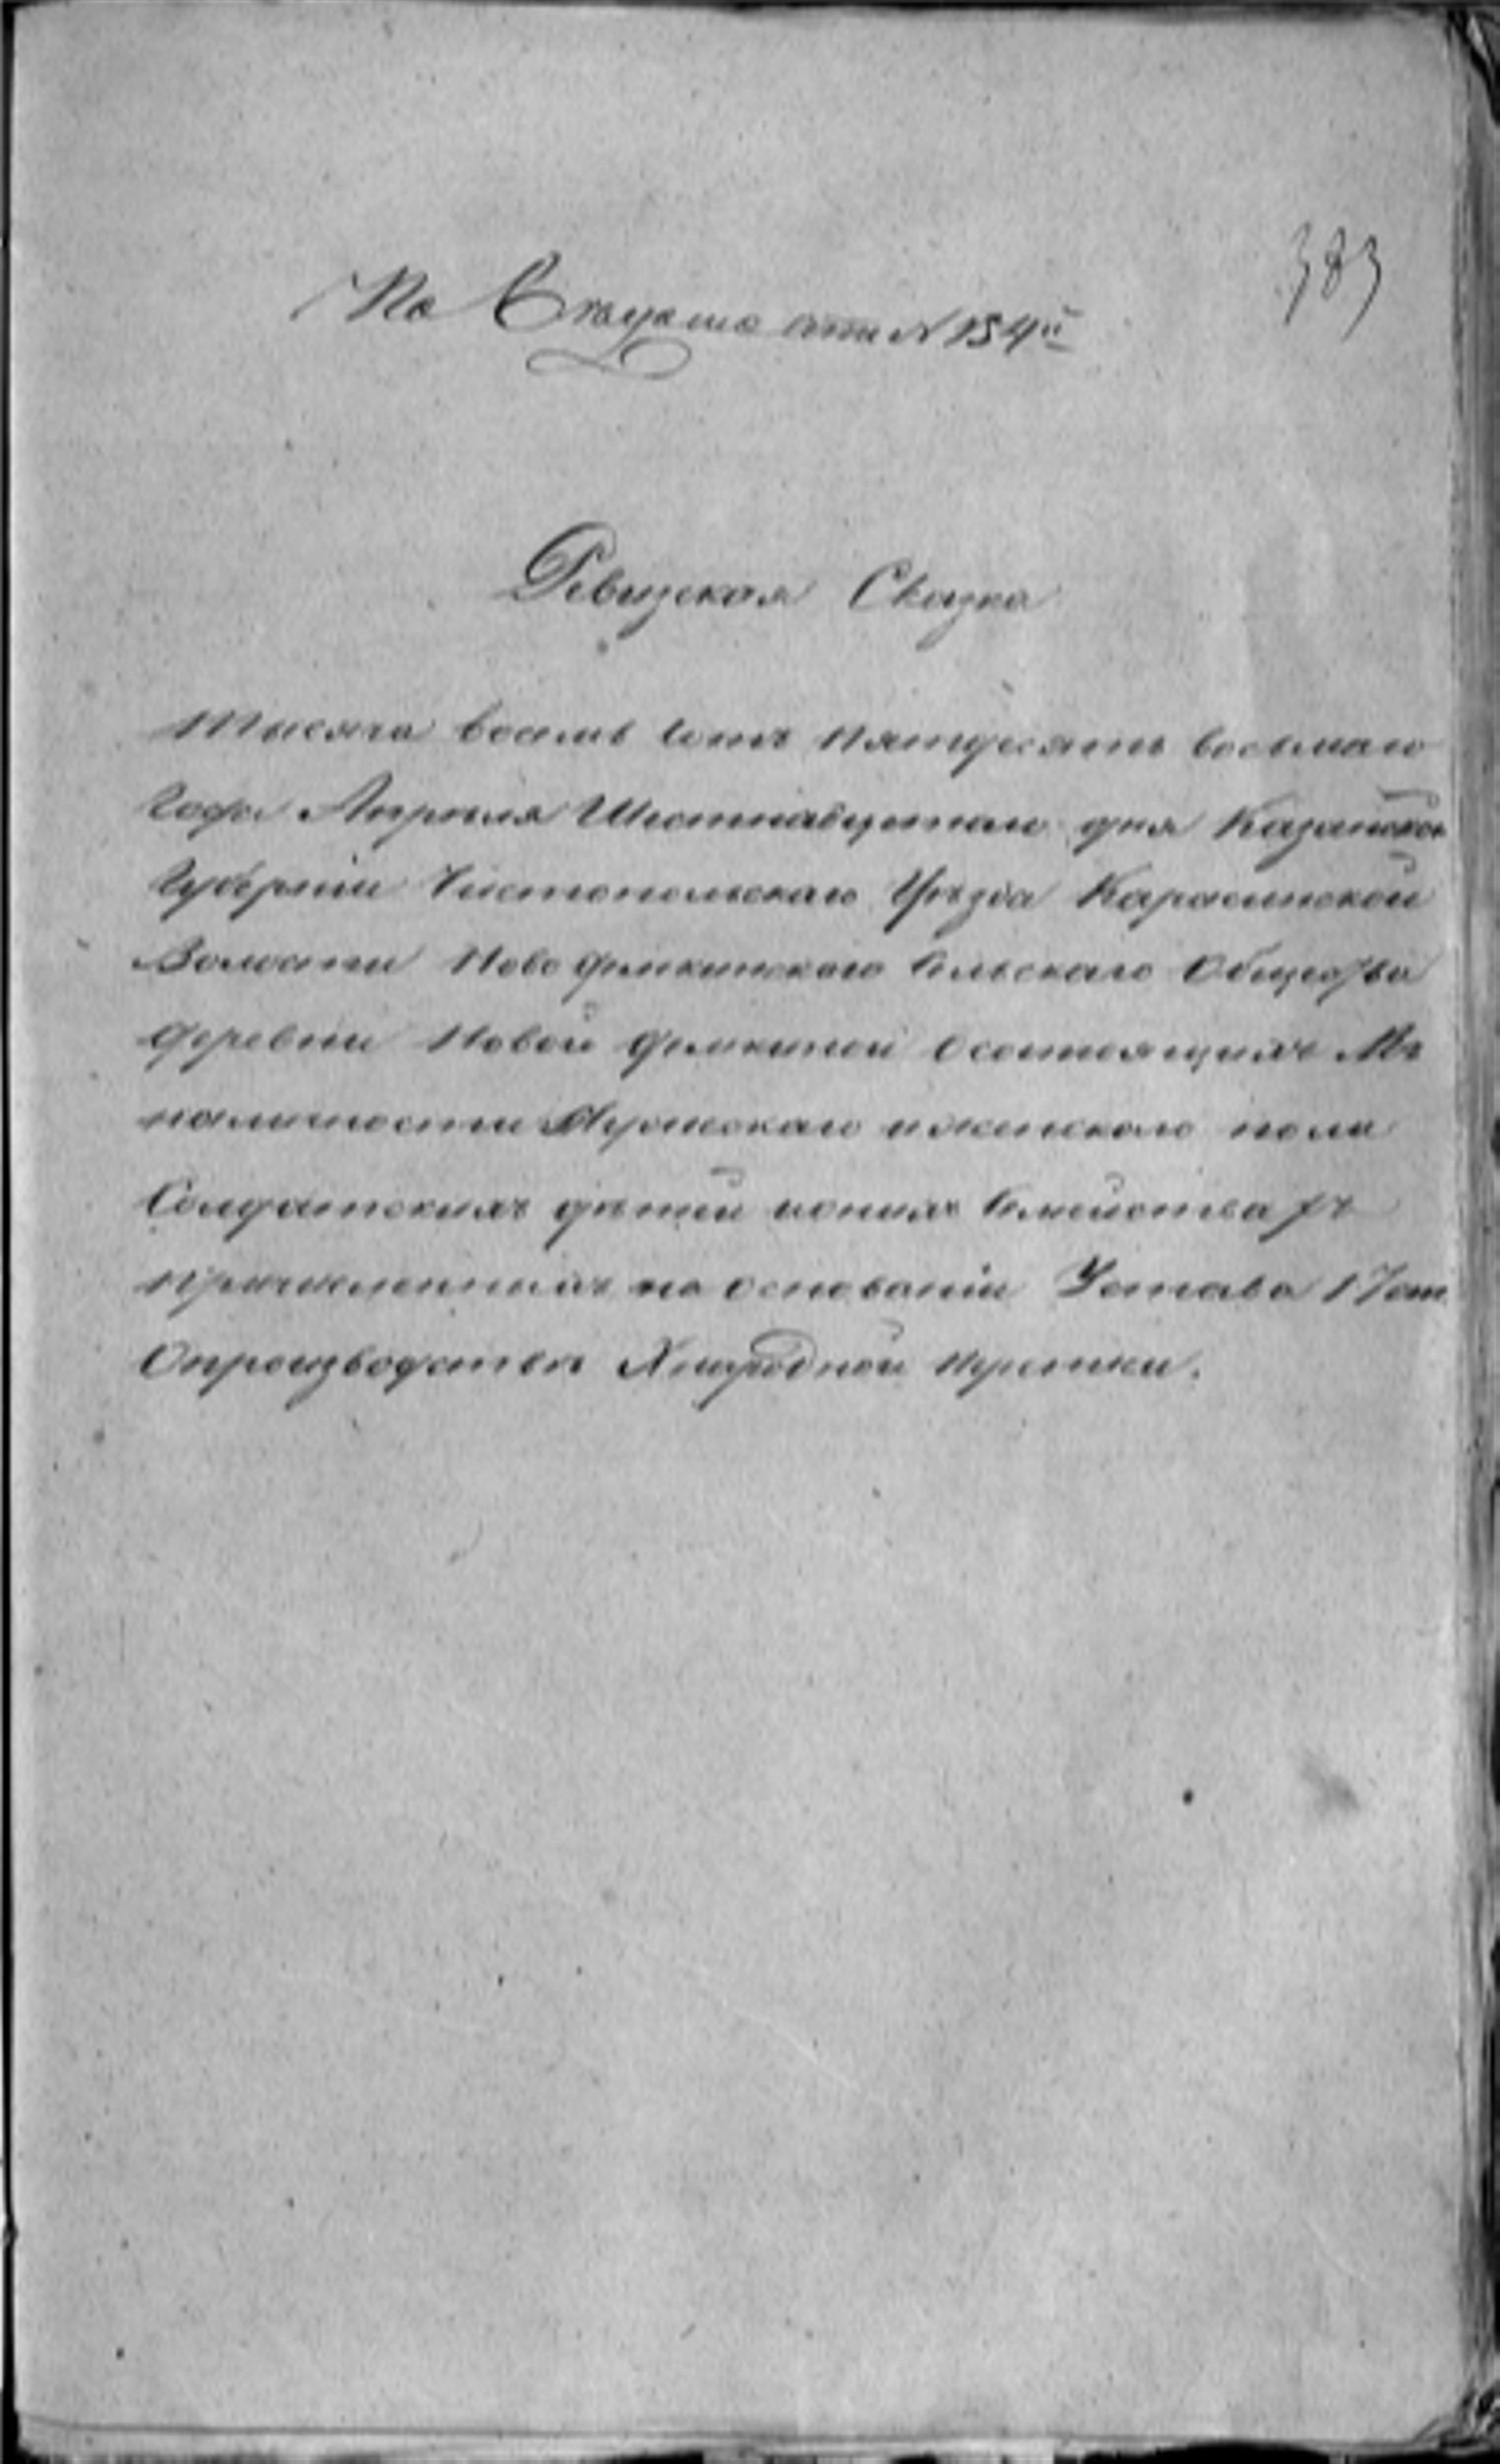 383
По
№ 154й
Ревизская Сказка
Тысяча восемь сотъ пятдесятъ восьмаго
Года Апреля Шестнадцатаго дня Казанской
Губернии Чистопольскаго Уѣзда Карасинской
Волости Ново Демкинскаго Сельскаго Общества
Деревни Новой Демкиной Осостоящихъ въ
наличности Мужескаго иженскаго пола
Солдатскихъ дѣтей Семействахъ
причисленныхъ на основании Устава 17 ст
Опроизводстве Хнародной переписи.